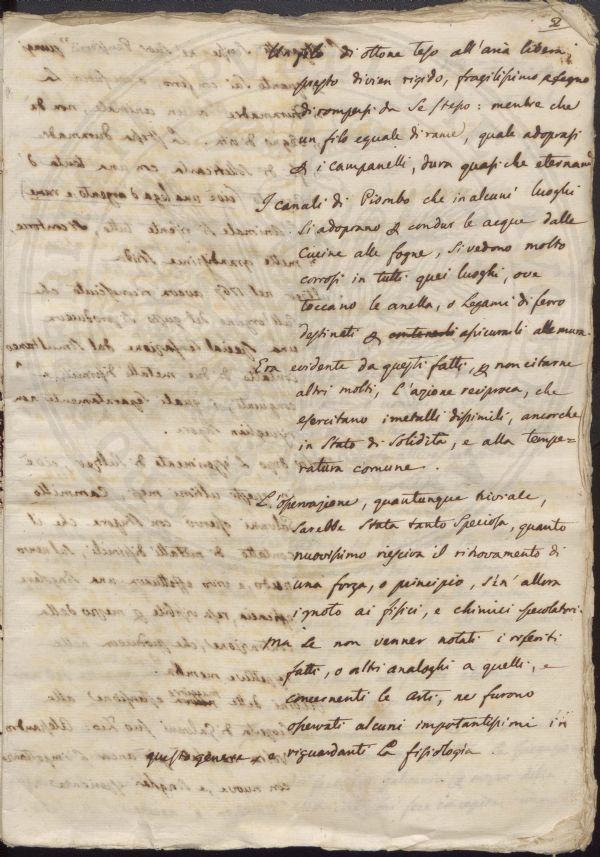 2
Un filo di ottone teso all'aria libera,
presto divien rigido, fragilissimo a segno
di rompersi da se stesso: mentre che
un filo eguale di rame, quale adoprasi
p i campanelli, dura quasi che eternamᵉ
I canali di Piombo che in alcuni luoghi
si adoprano p condur le acque dalle
Cucine alle fogne, si vedono molto
corrosi in tutti quei luoghi, ove
toccano le anella, o Legami di ferro
destinati p assicurarli alle mura.
Era evidente da questi fatti, p non citarne
altri molti, L'azione reciproca, che
esercitano i metalli dissimili, ancorche
in Stato di Solidità, e alla tempe=
ratura comune.
L'osservazione, quantunque triviale,
sarebbe stata tanto speciosa, quanto
nuovissimo riesciva il ritrovamento di
una forza, o principio, sin' allora
ignoto ai fisici, e chimici specolatori.
Ma se non venner notati i riferiti
fatti, o altri analoghi a quelli, e
concernenti le arti, ne furono
osservati alcuni importantissimi in
questo genere, e riguardanti La fisiologia